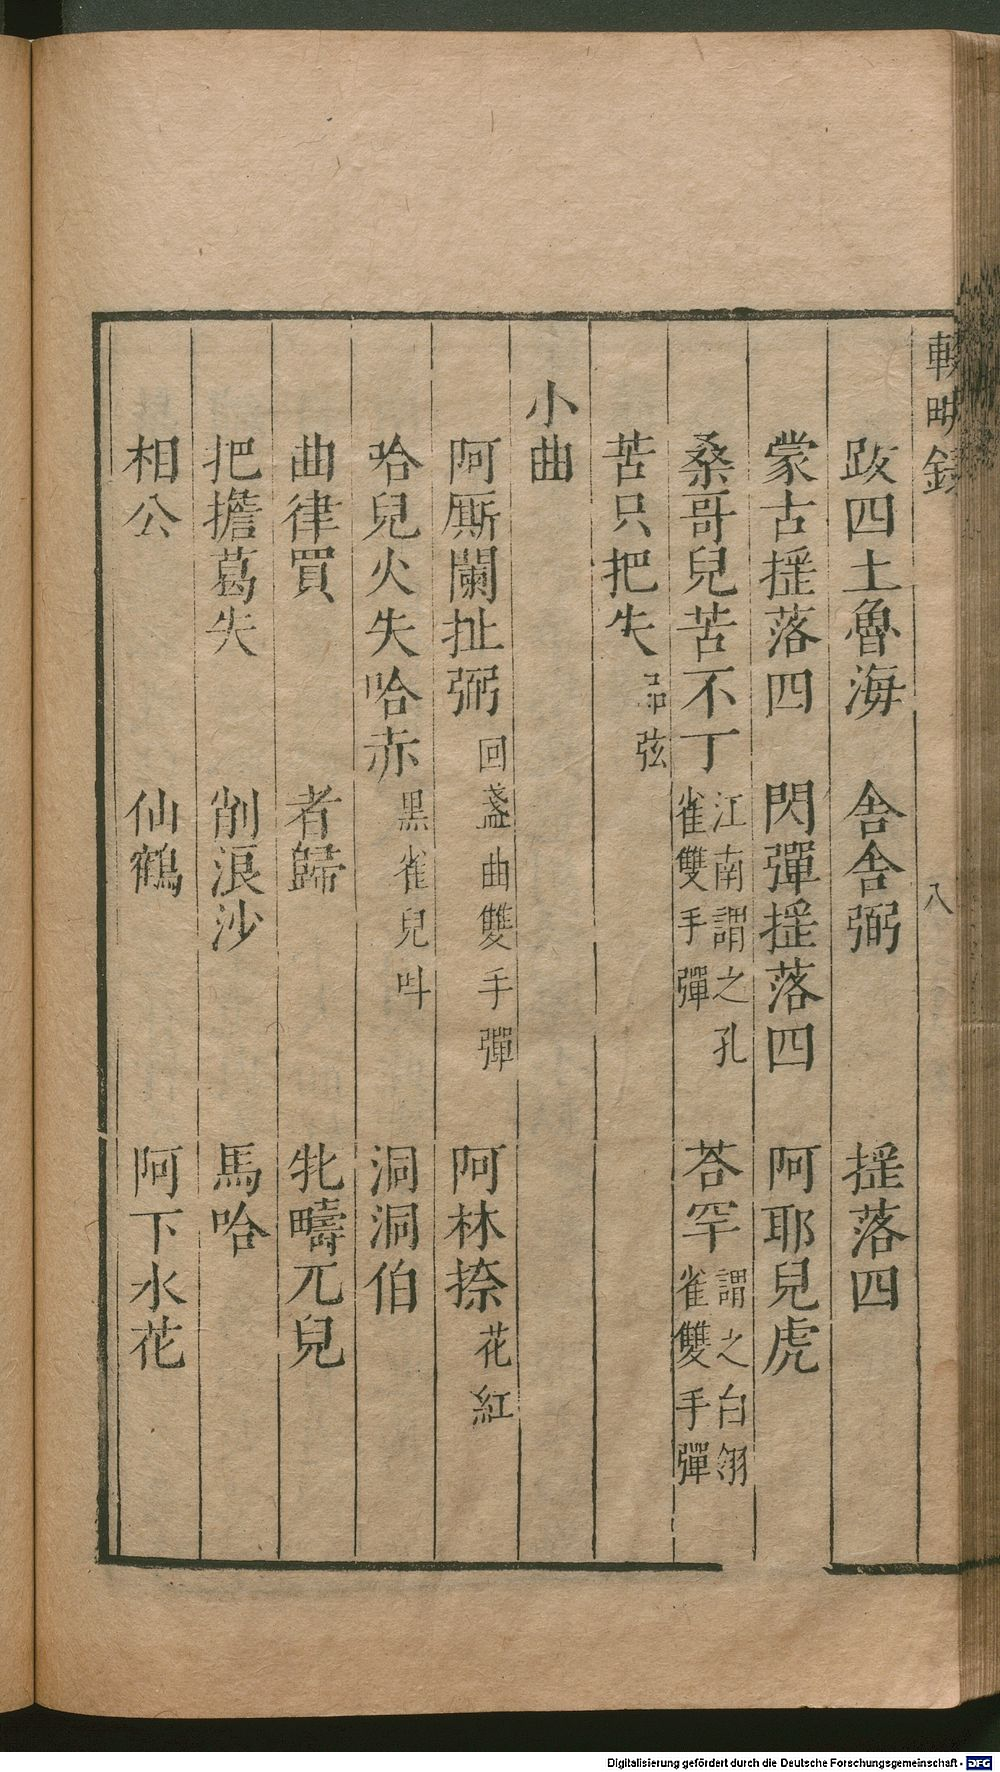 輟畊錄
八
跂四土魯海　舎舎弼　搖落四
蒙古搖落四　閃彈搖落四　阿耶兒虎
桑哥兒苦不丁江南謂之孔雀雙手彈　荅罕謂之白翎雀雙手彈
苦只把失品弦
小曲
阿厮闌扯弼回盞曲雙手彈　阿林捺花紅
哈兒火失哈赤黑雀兒呌　洞洞伯
曲律買　者歸　牝疇兀兒
把擔葛失　削浪沙　馬哈
相公　仙鶴　阿下水花
Digitalisierung gefördert durch die Deutsche Forschungsgemeinschaft - DFG